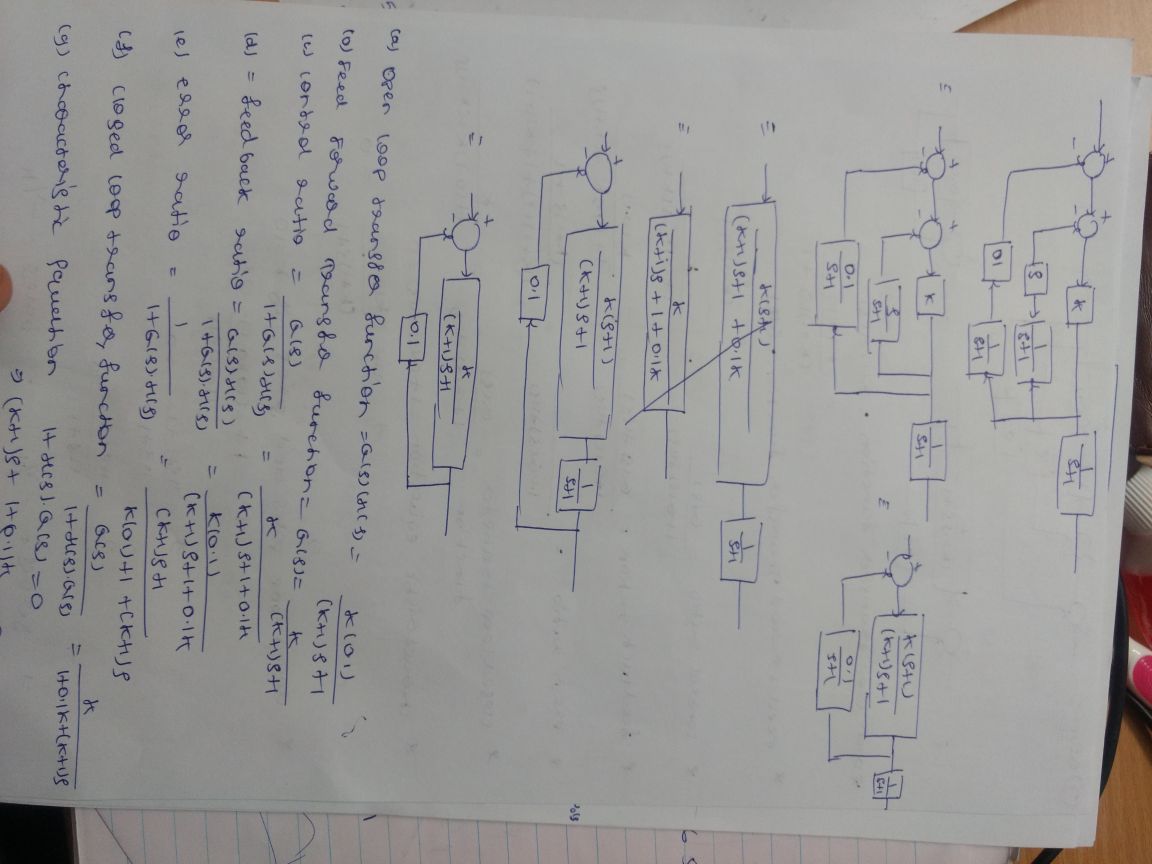 +
-
+
-
K
1/(s+1)
s
1/(s+1)
0.1
1/(s+1)
=
+
-
+
-
K
1/(s+1)
s/(s+1)
0.1/(s+1)
=
+
-
K(s+1)/((K+1)s+1)
1/(s+1)
0.1/(s+1)
=
K(s+1)/((K+1)s+1 + 0.1K)
1/(s+1)
=
K/((K+1)s + 1 + 0.1K)
+
-
K(s+1)/((K+1)s+1)
1/(s+1)
0.1
=
+
-
K/((K+1)s+1)
0.1
(a) open loop transfer function = G(s)H(s) = K(0.1)/((K+1)s+1)
(b) feed forward transfer function = G(s) = K/((K+1)s+1)
(c) control ratio = G(s)/(1+G(s)H(s)) = K/((K+1)s+1+0.1K)
(d) = feed back ratio = G(s)H(s)/(1+G(s).H(s)) = K(0.1)/((K+1)s+1+0.1K)
(e) error ratio = 1/(1+G(s).H(s)) = (K+1)s+1/(K(0.1)+1+(K+1)s)
(f) closed loop transfer function = G(s)/(1+H(s).G(s)) = K/(1+0.1K+(K+1)s)
(g) characteristic equation 1+H(s).G(s) = 0
⇒ (K+1)s + 1+0.1K